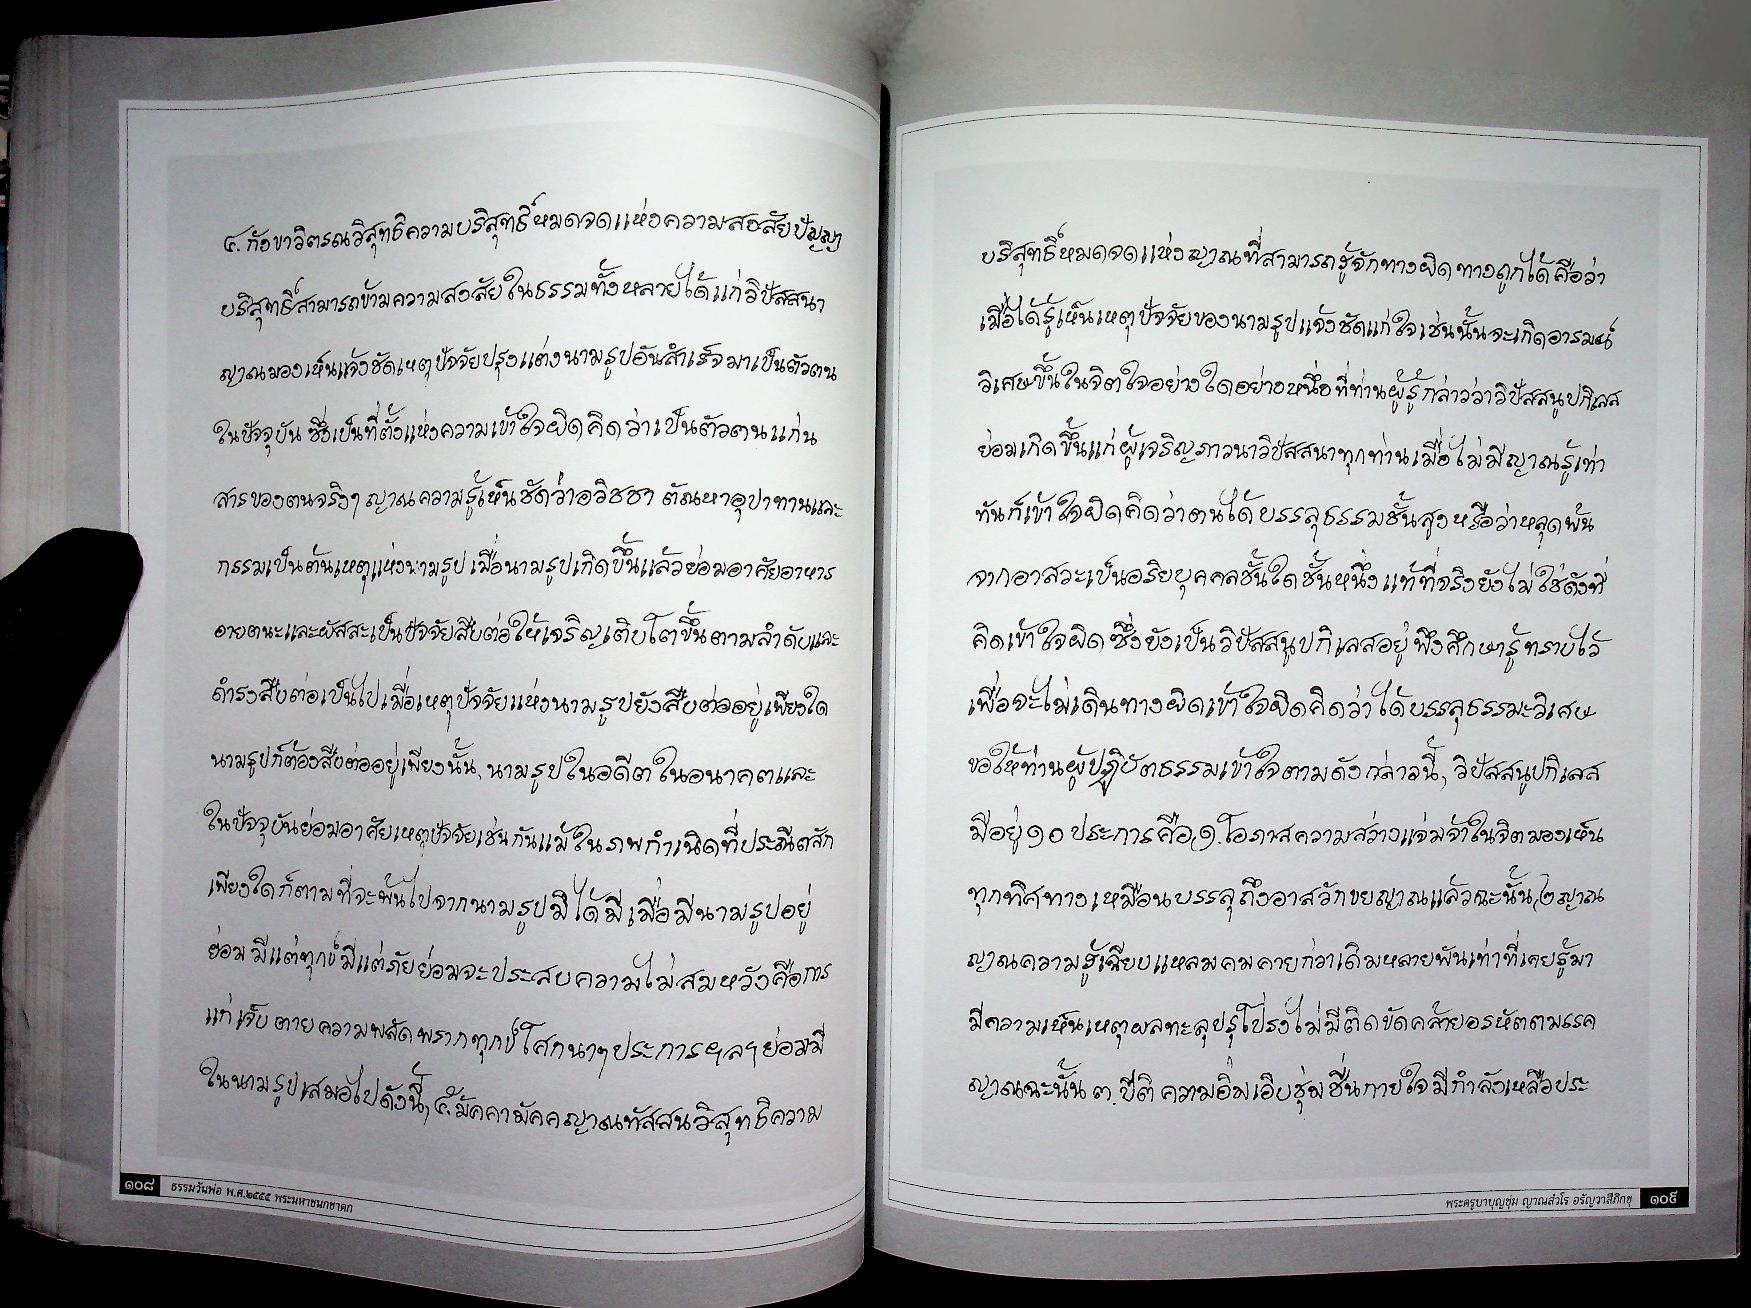 ๔. กังขาวิตรณวิสุทธิความบริสุทธิ์หมดจดแห่งความสงสัยปัญญา
บริสุทธิ์สามารถข้ามความสงสัยในธรรมทั้งหลายได้แก่วิปัสสนา
ญาณมองเห็นแจ้งชัดเหตุปัจจัยปรุงแต่งนามรูปอันสำเร็จมาเป็นตัวตน
ในปัจจุบัน ซึ่งเป็นที่ตั้งแห่งความเข้าใจผิดคิดว่าเป็นตัวตนแก่น
สารของตนจริงๆ ญาณความรู้เห็นชัดว่าอวิชชา ตัณหาอุปาทานและ
กรรมเป็นต้นเหตุแห่งนามรูป เมื่อนามรูปเกิดขึ้นแล้วย่อมอาศัยอาหาร
อายตนะและผัสสะเป็นปัจจัยสืบต่อให้เจริญเติบโตขึ้นตามลำดับและ
ดำรงสืบต่อเป็นไปเมื่อเหตุปัจจัยแห่งนามรูปยังสืบต่ออยู่เพียงใด
นามรูปก็ต้องสืบต่ออยู่เพียงนั้น, นามรูปในอดีตในอนาคตและ
ในปัจจุบันย่อมอาศัยเหตุปัจจัยเช่นกันแม้ในภพกำเนิดที่ประณีตสัก
เพียงใดก็ตามที่จะพ้นไปจากนามรูปมิได้มี เมื่อมีนามรูปอยู่
ย่อมมีแต่ทุกข์มีแต่ภัยย่อมจะประสบความไม่สมหวังคือการ
แก่ เจ็บ ตาย ความพลัดพรากทุกข์โศกนาๆประการฯลฯย่อมมี
ในนามรูปเสมอไปดังนี้, ๕.มัคคามัคคญาณทัสสนวิสุทธิความ
๑๐๘ ธรรมวันพ่อ พ.ศ.๒๕๕๕ พระมหาชนกชาดก
บริสุทธิ์หมดจดแห่งญาณที่สามารถรู้จักทางผิดทางถูกได้คือว่า
เมื่อได้รู้เห็นเหตุปัจจัยของนามรูปแจ้งชัดแก่ใจเช่นนั้นจะเกิดอารมณ์
วิเศษขึ้นในจิตใจอย่างใดอย่างหนึ่งที่ท่านผู้รู้กล่าวว่าวิปัสสนูปกิเลส
ย่อมเกิดขึ้นแก่ผู้เจริญภาวนาวิปัสสนาทุกท่านเมื่อไม่มีญาณรู้เท่า
ทันก็เข้าใจผิดคิดว่าตนได้บรรลุธรรมชั้นสูงหรือว่าหลุดพ้น
จากอาสวะเป็นอริยบุคคลชั้นใดชั้นหนึ่งแท้ที่จริงยังไม่ใช่ดังที่
คิดเข้าใจผิดซึ่งยังเป็นวิปัสสนูปกิเลสอยู่ พึงศึกษารู้ทราบไว้
เพื่อจะไม่เดินทางผิดเข้าใจผิดคิดว่าได้บรรลุธรรมะวิเศษ
ขอให้ท่านผู้ปฏิบัตธรรมเข้าใจตามดังกล่าวนี้, วิปัสสนูปกิเลส
มีอยู่๑๐ประการคือ(๑.โอภาสความสว่างแจ่มจ้าในจิตมองเห็น
ทุกทิศทางเหมือนบรรลุถึงอาสวักขยญาณแล้วฉะนั้น,(๒ ญาณ
ญาณความรู้เฉียบแหลมคมคายกว่าเดิมหลายพันเท่าที่เคยรู้มา
มีความเห็นเหตุผลทะลุปรุโปร่งไม่มีติดขัดคล้ายอรหัตตมรรค
ญาณฉะนั้น ๓.ปีติ ความอิ่มเอิบชุ่มชื่นกายใจมีกำลังเหลือประ
พระครูบาบุญชุ่ม ญาณสํวโร อรัญวาสีภิกขุ ๑๐๙